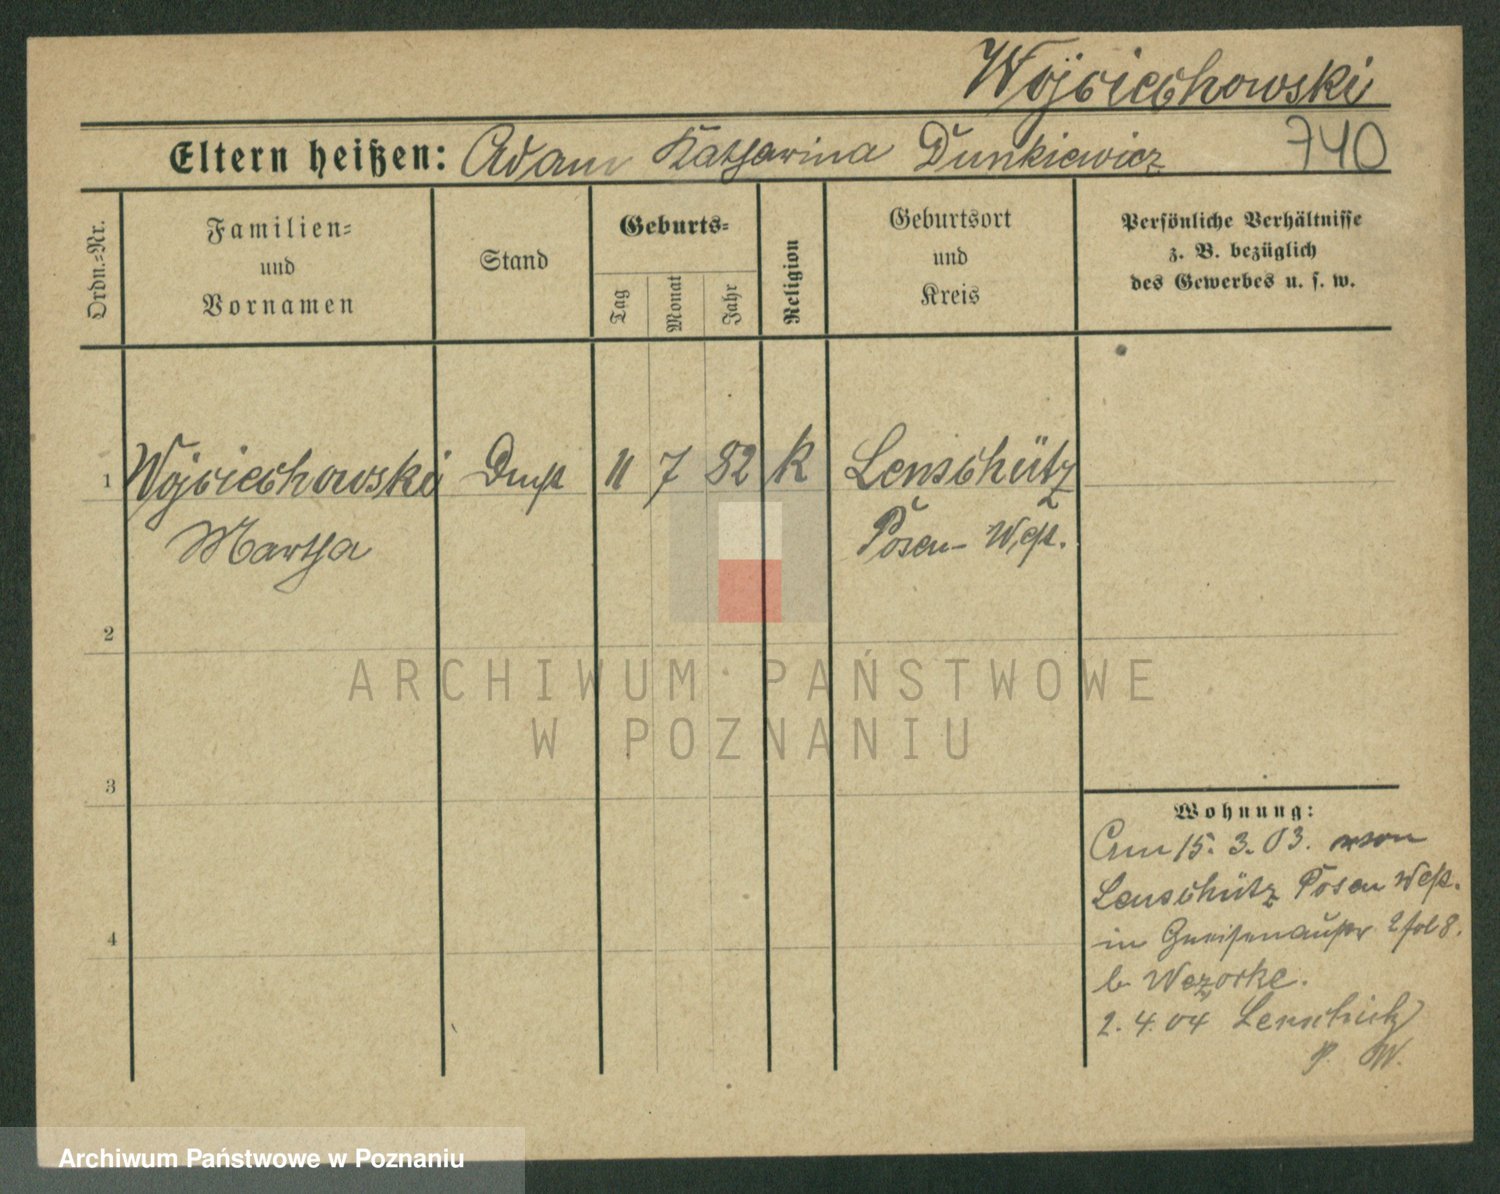 Wojciechowski
Eltern heißen: Adam Katharina Dunkiewicz 740
Ordn.-Nr.
Familien-
und
Vornamen
Stand
Geburts-
Tag
Monat
Jahr
Religion
Geburtsort
und
Kreis
Persönliche Verhältnisse
z. B. bezüglich
des Gewerbes u. s. w.
1 Wojciechowski 11 7 82 k Lenschütz
Martha Posen West.
2
ARCHIWUM PAŃSTWOWE
W POZNANIU
3
4
Wohnung:
Am 15. 3. 03. von
Lenschütz Posen West.
in
b Wezorke.
2. 4. 04 Lenschütz
P. W.
Archiwum Państwowe w Poznaniu